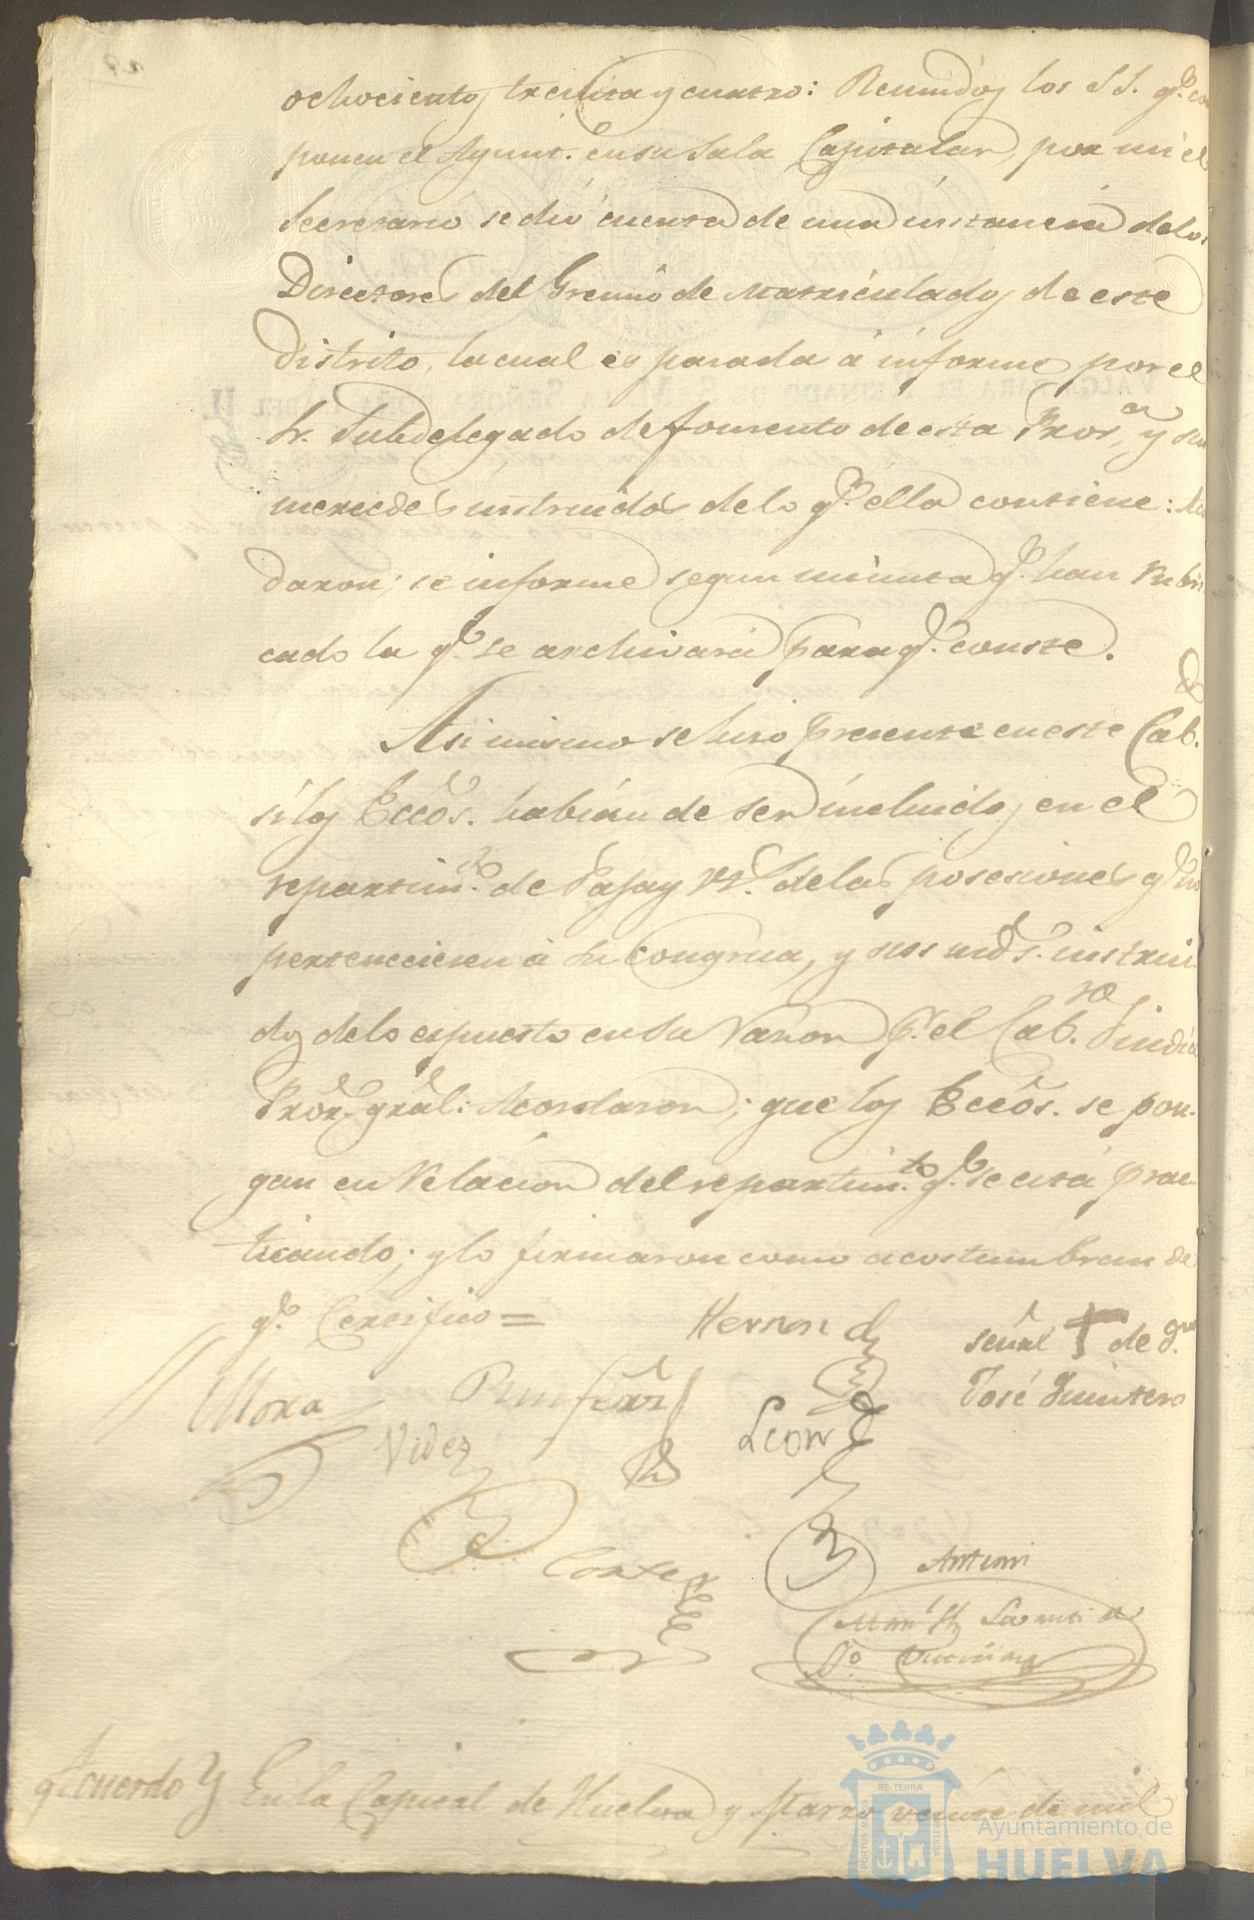 ochocientos treinta y cuatro: Reunidos los S.S. q.e com
ponen el Ayunt. en su Sala Capitular, por mi el
Secretario se dió cuenta de una instancia de los
Directores del Gremio de Matriculados de este
distrito, la cual es pasada á informe por el
Sr. Subdelegado de fomento de esta Prov.cia, y sus
mercedes instruidos de lo q.e ella contiene: Acor
daron; se informe segun minuta q.e han rubri
cado la q.e se archivará para q.e conste.
Asi mismo se hizo presente en este Cab.do
si los Eccôs. habían de ser incluidos en el
repartim.to de Paja y de las posesiones q.e no
perteneciesen á su Congrua, y sus mds. instrui
dos de lo espuesto en su razon p.r el Cab.ro Sindico
Pror. gral: Acordaron; que los Eccôs. se pon-
gan en relacion del repartim.to q.e se está prac
ticando; y lo firmaron como acostumbran de
q.e Certifico =
Hernand
señal † de
José Quintero
Mora
Videz
Leon
Cortes
Antoni
Acuerdo En la Capital de Huelva y Marzo veinte de mil
PORTUS MARIS
ET TERRÆ
CUSTODIA
Ayuntamiento de
HUELVA